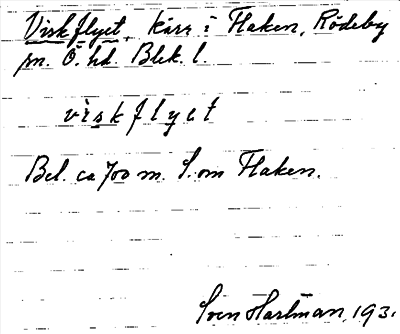 Viskflyet, kärr i Flaken, Rödeby
sn. Ö. hd. Blek. l.
viskflyet
Bel. ca 700 m. S. om Flaken.
Sven Hartman, 193.